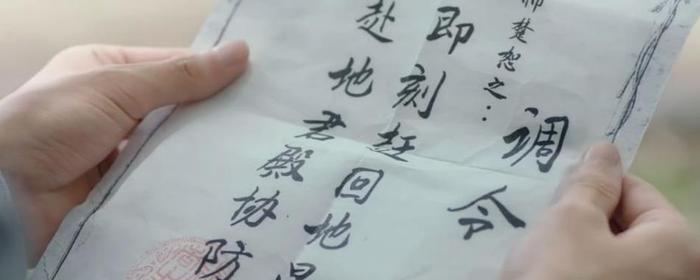 调令
楚恕之：
即刻赶回地
赴地君殿协防